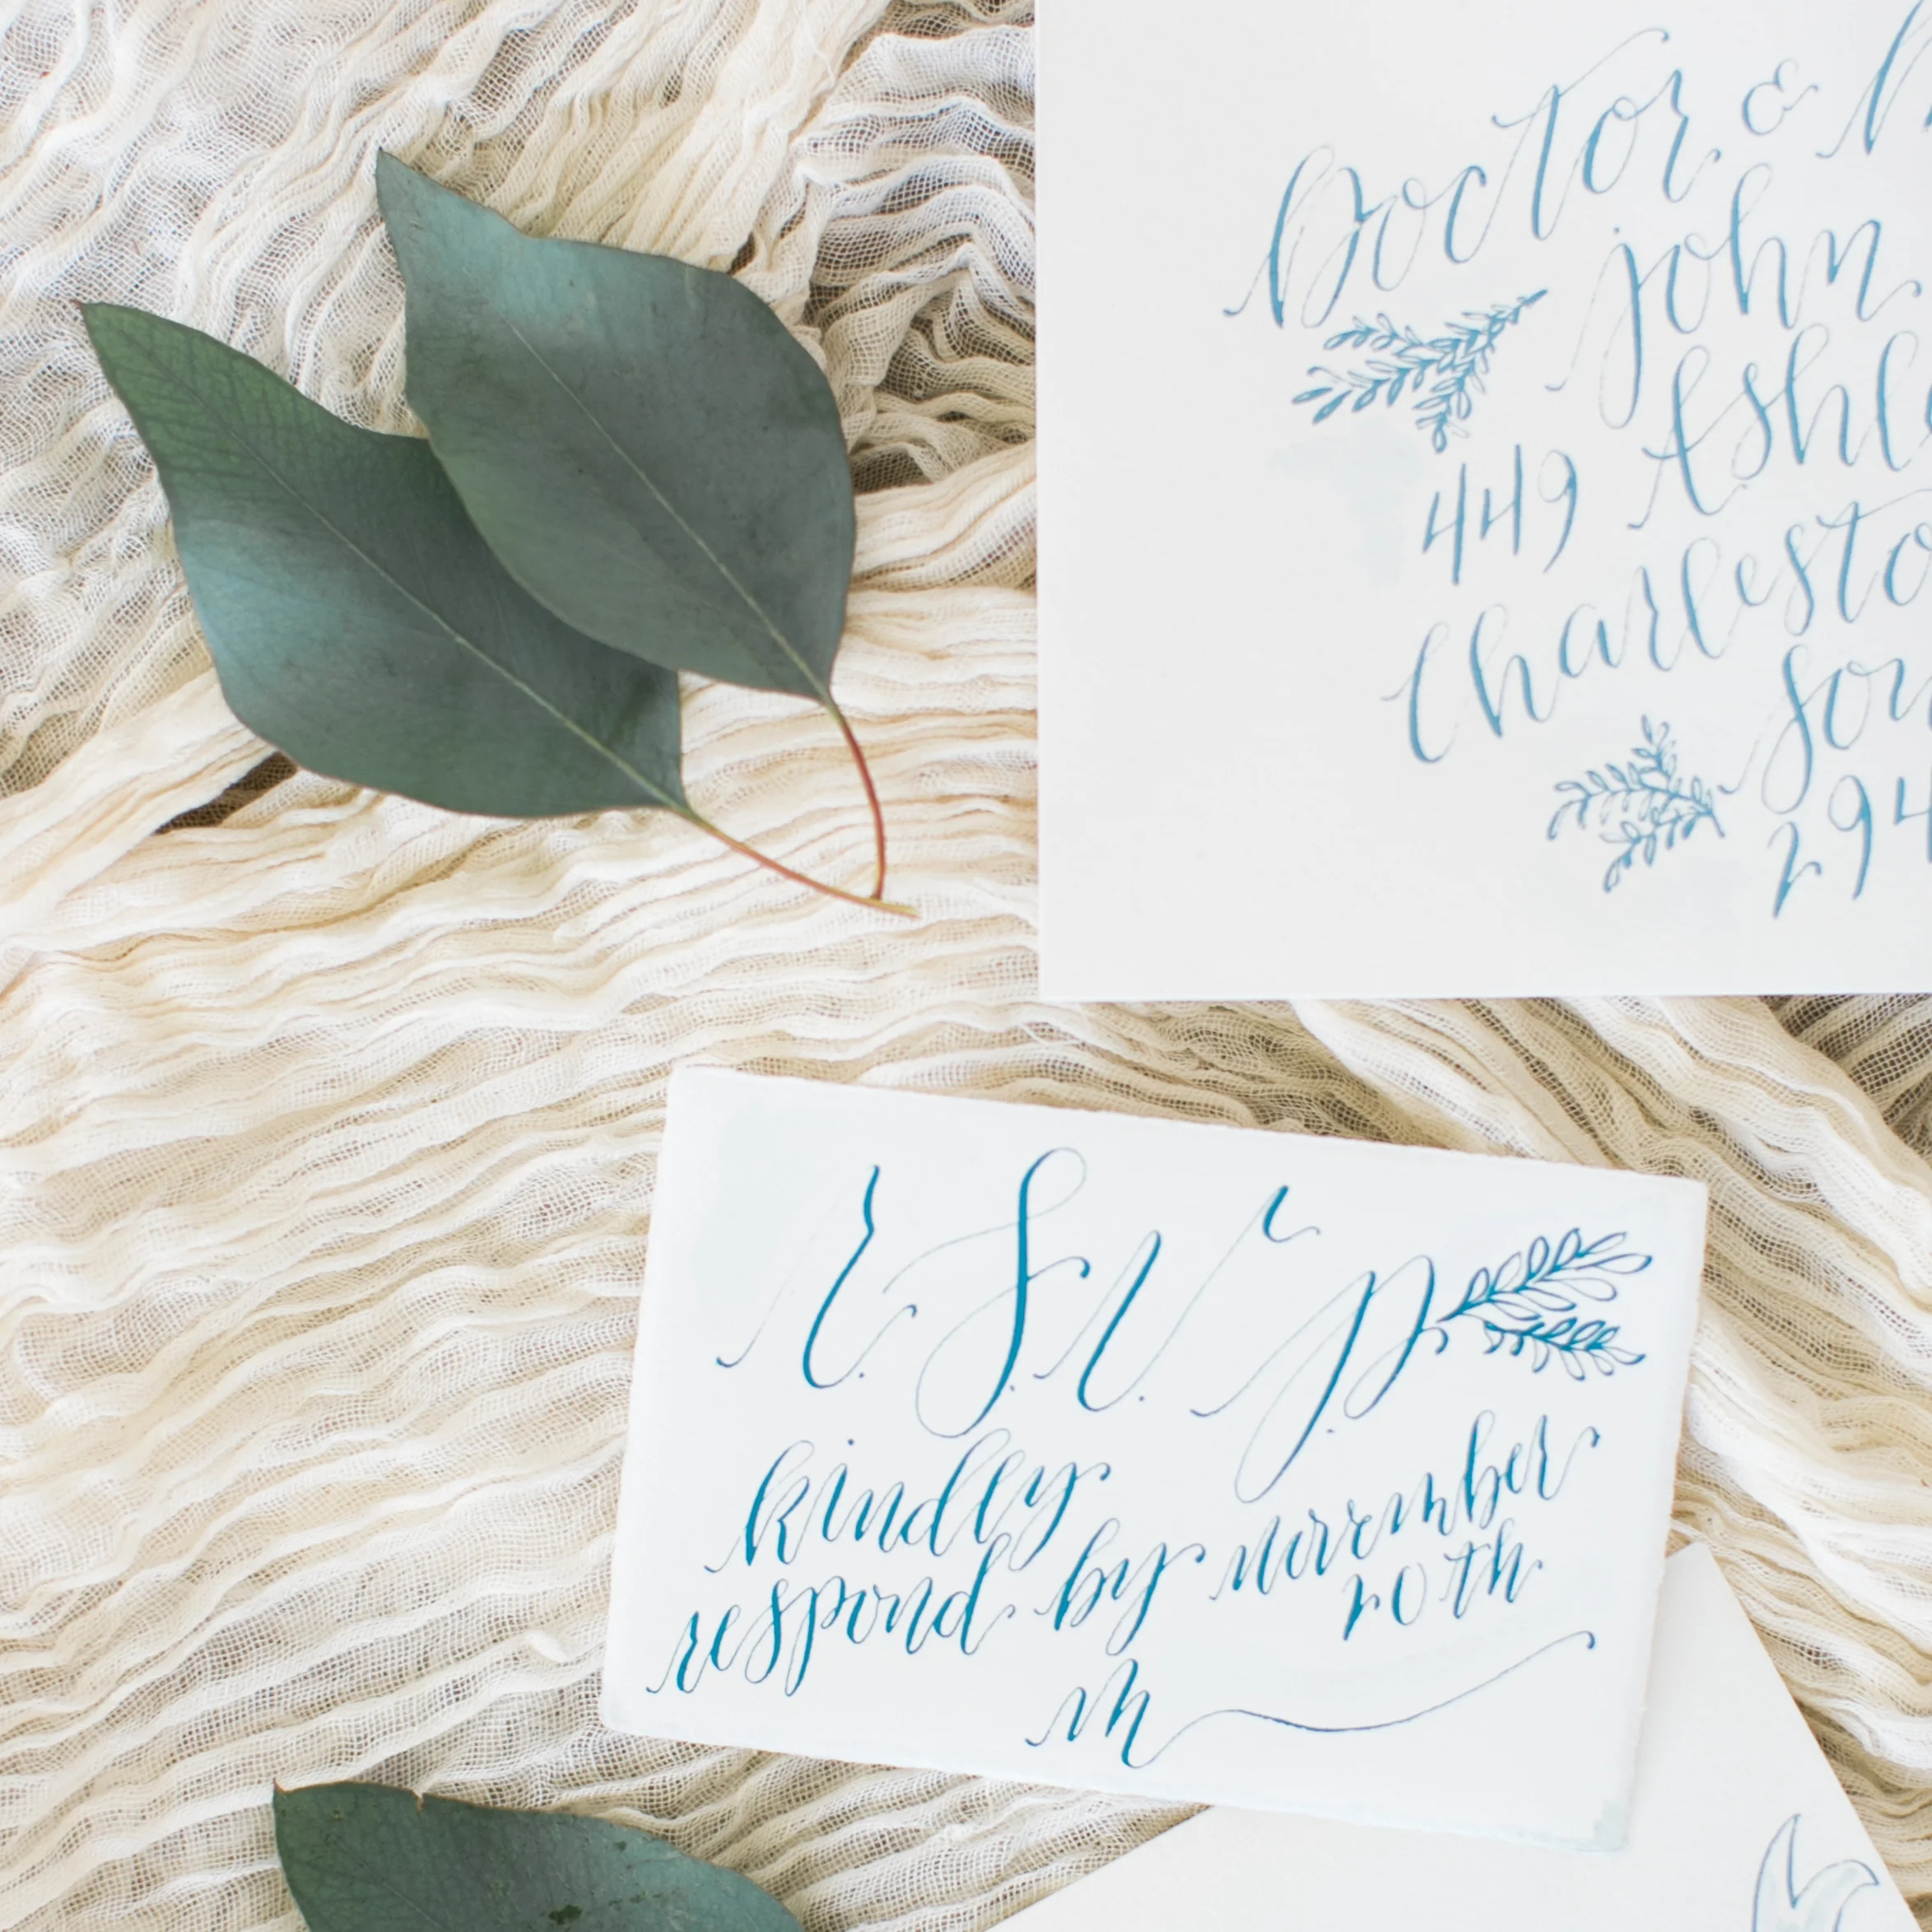 Doctor &
john
449
Charlesto
294
R.S.V.P.
kindly
respond by november
20th
M